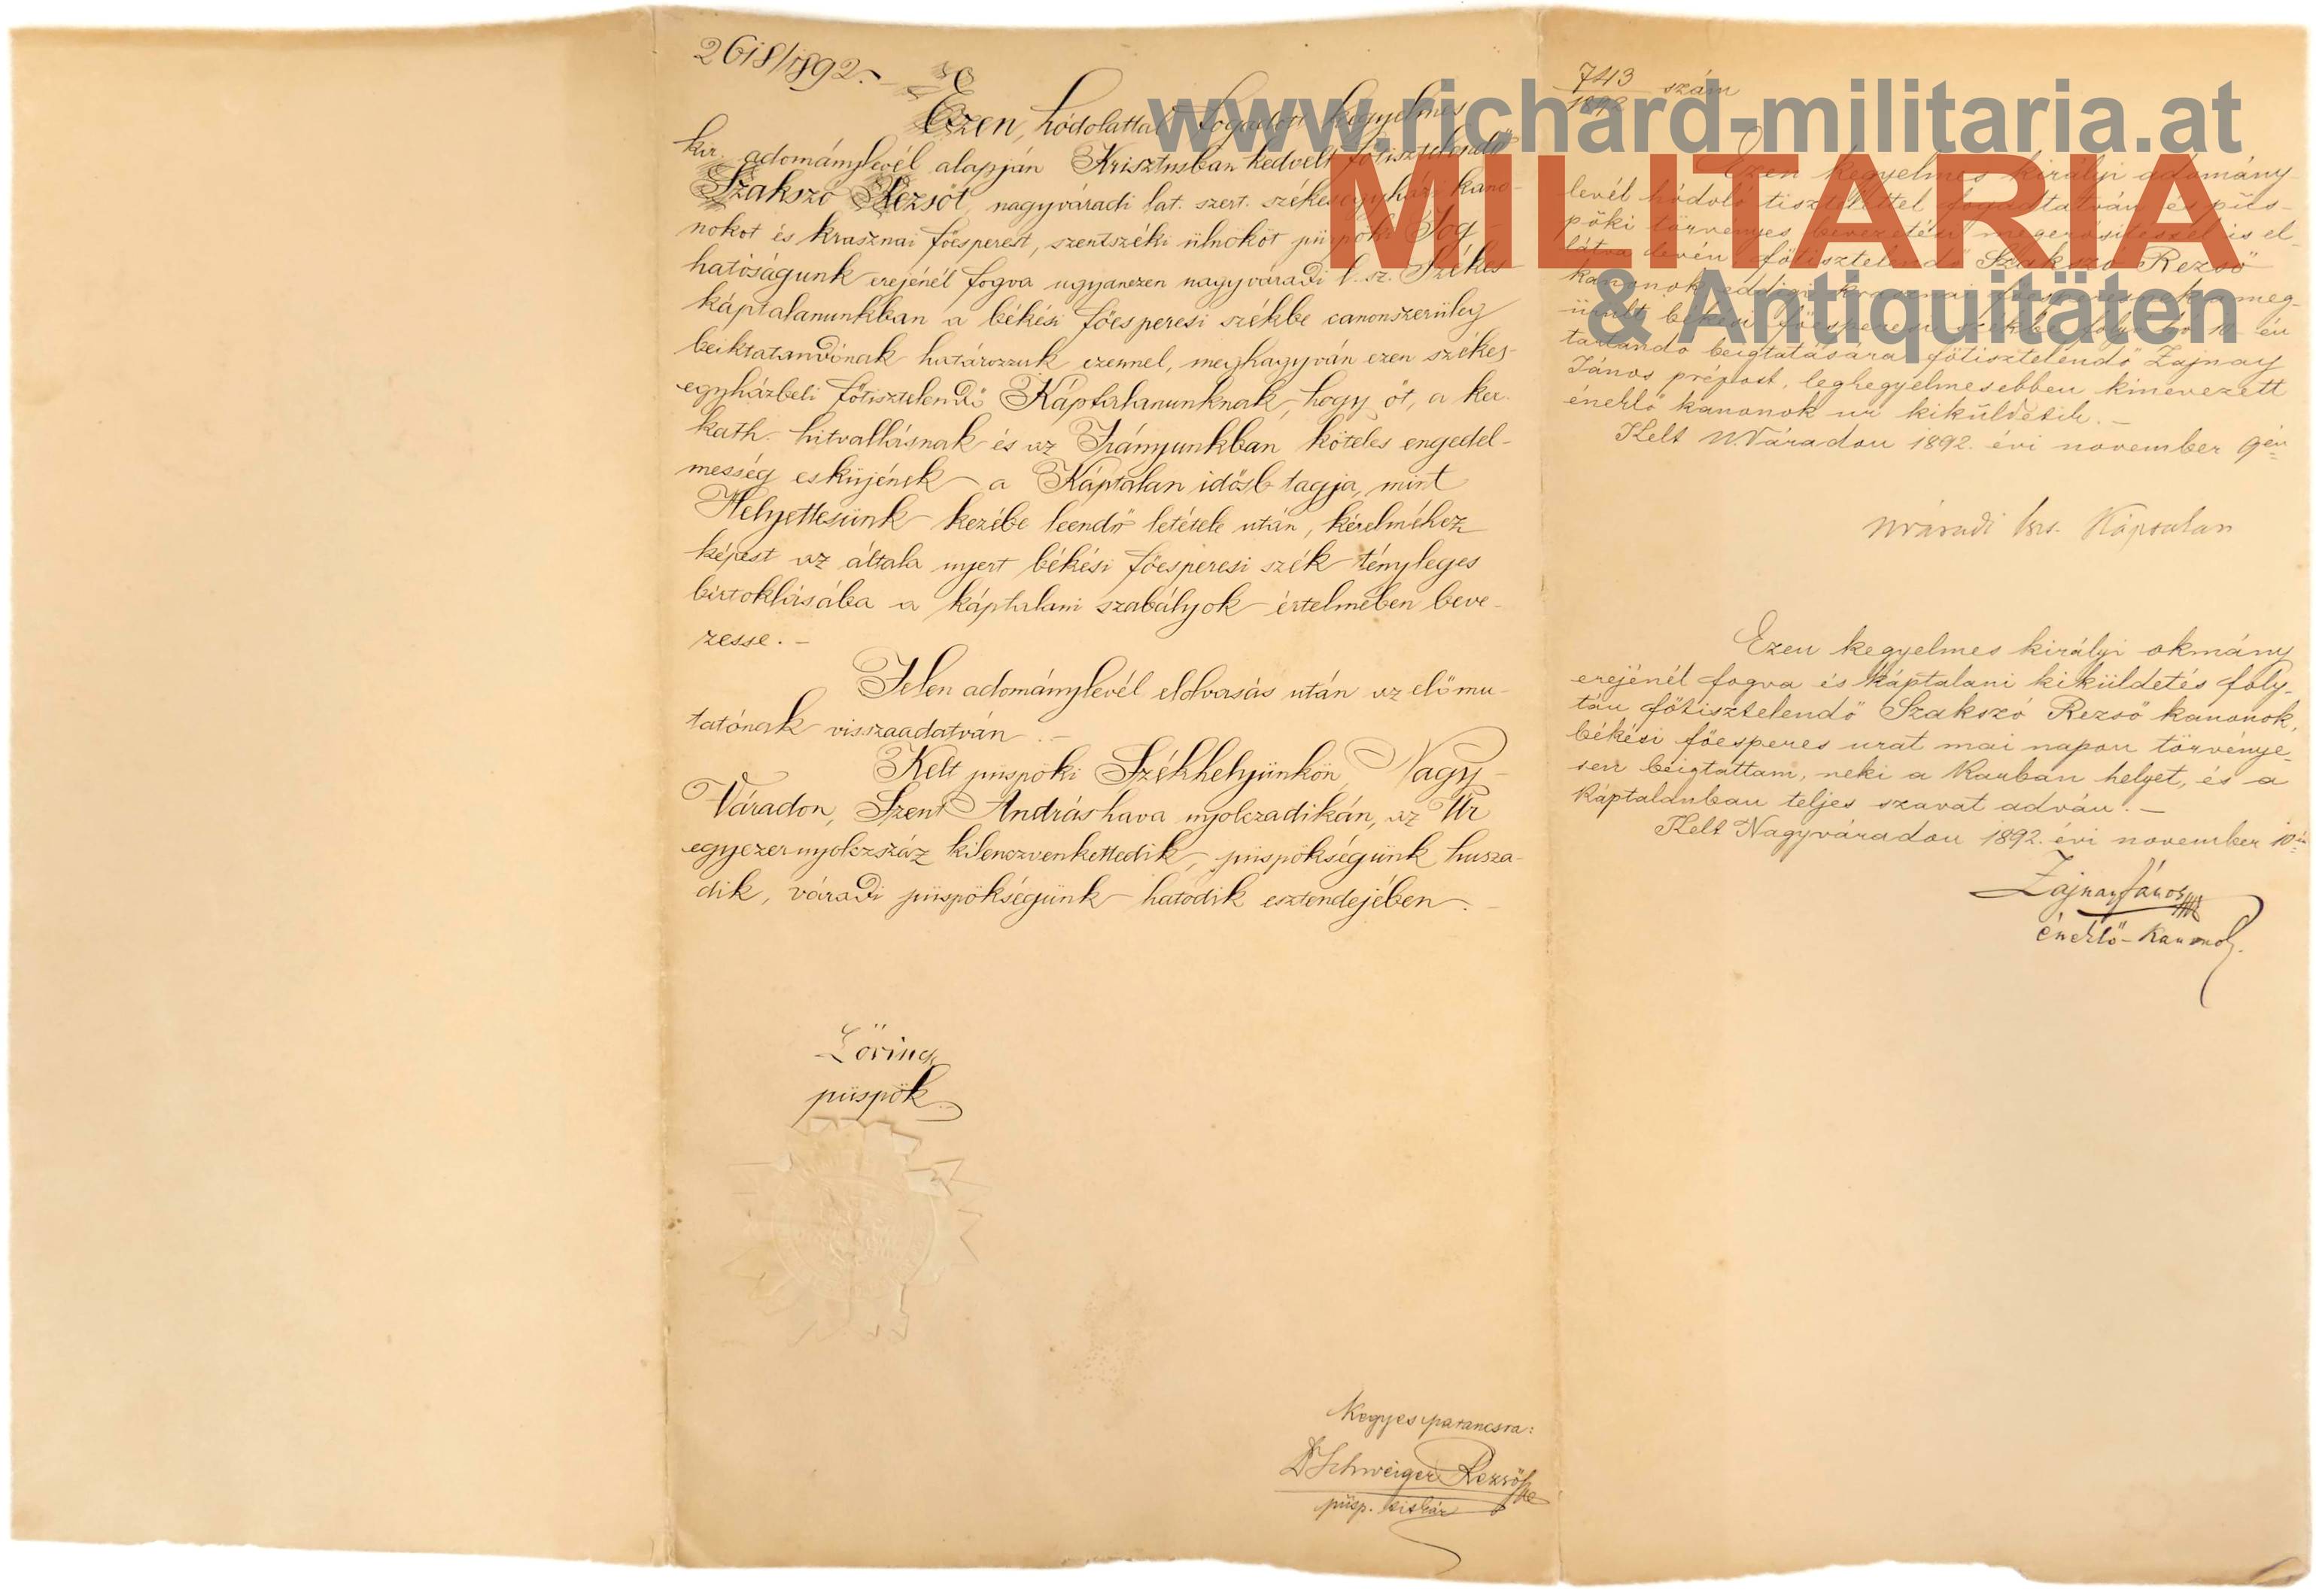 2618/1892.
Ezen, hódolattal fogadott kegyelmes
kir. adománylevél alapján Krisztusban kedvelt főtisztelendő
Szakszó Rezsőt, nagyváradi lat. szert. székesegyházi kano-
nokot és krasznai főesperest, szentszéki ülnököt püspöki Jog-
hatóságunk erejénél fogva ugyanezen nagyváradi l. sz. Székes
káptalanunkban a békési főesperesi székbe canonszerüleg
beiktatandónak határozzuk ezennel, meghagyván ezen székes-
egyházbeli főtisztelendő Káptalanunknak, hogy őt, a ker.
kath. hitvallásnak és az Irányunkban köteles engedel-
messég esküjének a Káptalan idősb tagja, mint
Helyettesünk kezébe leendő letétele után, kérelméhez
képest az általa nyert békési főesperesi szék tényleges
birtoklásába a káptalani szabályok értelmében beve-
zesse. –
Jelen adománylevél elolvasás után az előmu-
tatónak visszaadatván. –
Kelt püspöki Székhelyünkön, Nagy-
Váradon, Szent András hava nyolczadikán, az Úr
egyezernyolczszáz kilenczvenkettedik, püspökségünk husza-
dik, váradi püspökségünk hatodik esztendejében. –
Lőrincz
püspök
Kegyes parancsra:
Dr Schweiger Rezső
püsp. titkár
743
1892 szám
Ezen kegyelmes királyi adomány-
levél hódoló tisztelettel fogadtatván és püs-
pöki törvényes bevezetési megerősítéssel is el-
látva lévén főtisztelendő Szakszó Rezső
kanonok, eddigi krasznai főesperesnek a meg-
ürült békési főesperesi székbe folyó hó 10-én
tartandó beigtatására főtisztelendő Zajnay
János prépost, legkegyelmesebben kinevezett
éneklő kanonok ur kiküldetik. –
Kelt NVáradon 1892. évi november 9én
nváradi Káptalan
Ezen kegyelmes királyi okmány
erejénél fogva és káptalani kiküldetés foly-
tán főtisztelendő Szakszó Rezső kanonok,
békési főesperes urat mai napon törvénye-
sen beigtattam, neki a karban helyet, és a
káptalanban teljes szavat adván. –
Kelt Nagyváradon 1892. évi november 10én
Zajnay János
éneklő-kanonok.
www.richard-militaria.at
MILITARIA
& Antiquitäten